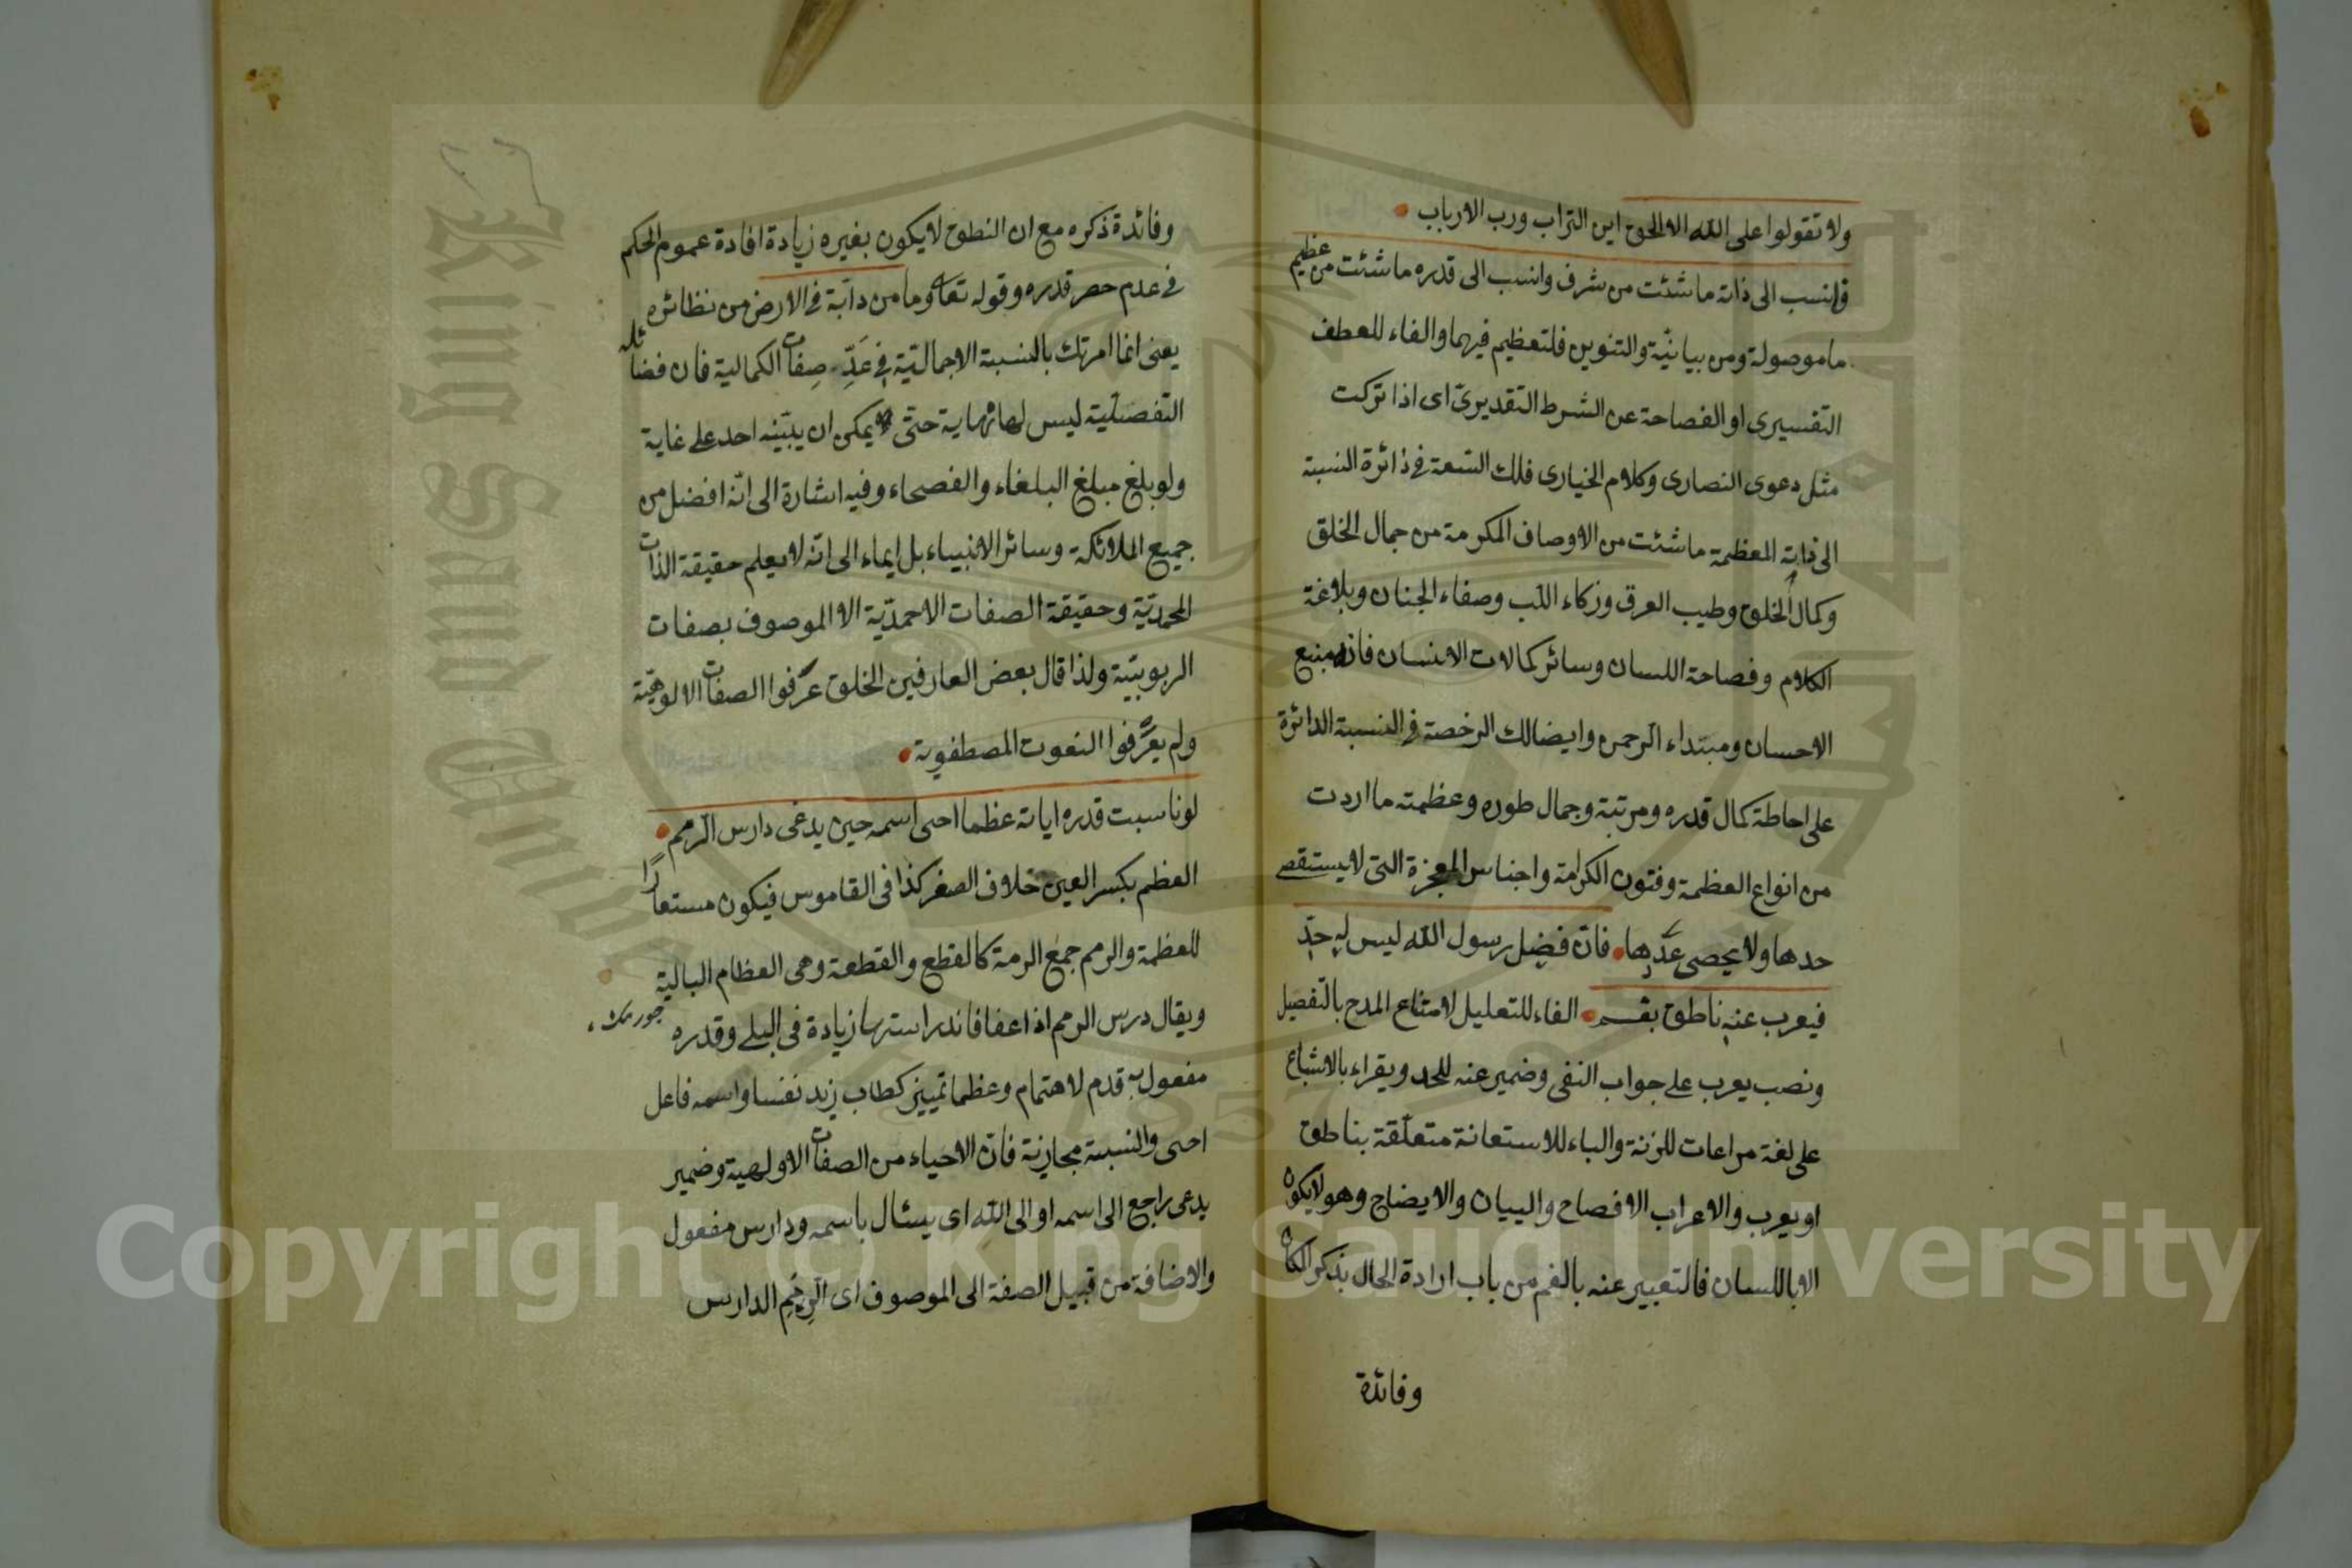 ولا تقولوا على الله الا الحق اين التراب ورب الارباب
فانسب الى ذاته ما شئت من شرف وانسب الى قدره ما شئت من عظيم
ما موصولة ومن بيانيّة والتنوين فلتعظيم فيهما والفاء للعطف
التفسيرى او الفصاحة عن الشرط التقديرىّ اى اذا تركت
مثل دعوى النصارى وكلام الخيارى فلك السّعة فى دائرة النسبة
الى ذاته المعظمة ما شئت من الاوصاف المكرمة من جمال الخلق
وكمال الخلق وطيب العرق وزكاء اللّب وصفاء الجنان وبلاغة
الكلام وفصاحة اللسان وسائر كمالات الانسان فانه منبع
الاحسان ومبتداء الرحمن وايضا لك الرخصة فى النسبة الدائرة
على احاطة كمال قدره ومرتبة وجمال طوره وعظمته ما اردت
من انواع العظمة وفنون الكرامة واجناس المعجزة التى لا يستقصى
حدها ولا يحصى عدّها فانّ فضل رسول الله ليس له حدّ
فيعرب عنه ناطق بفم الفاء للتعليل لامتناع المدح بالتفصيل
ونصب يعرب على جواب النفى وضمير عنه للحد ويقراء بالاشباع
على لغة مراعات للزنة والباء للاستعانة متعلّقة بناطق
او يعرب والاعراب الافصاح والبيان والايضاح وهو لا يكون
الا باللسان فالتعبير عنه بالفم من باب ارادة الحال بذكر المكان
وفائدة
وفائدة ذكره مع ان النطق لا يكون بغيره زيادة افادة عموم الحكم
فى عدم حصر قدره وقوله تعالى وما من دابّة فى الارض من نظائره
يعنى انما امرتك بالنسبة الاجماليّة فى عَدِّ صِفات الكمالية فان فضائله
التفصيليّة ليس لها نهاية حتّى يمكن ان يبيّنه احد على غاية
ولو بلغ مبلغ البلغاء والفصحاء وفيه اشارة الى انّه افضل من
جميع الملائكة وسائر الانبياء بل ايماء الى انّه لا يعلم حقيقة الذات
المحمديّة وحقيقة الصفات الاحمديّة الا الموصوف بصفات
الربوبيّة ولذا قال بعض العارفين الخلق عرّفوا الصفات الالوهيّة
ولم يعرّفوا النعوت المصطفوية
لو ناسبت قدره اياته عظما احى اسمه حين يدعى دارس الرمم
العظم بكسر العين خلاف الصغر كذا فى القاموس فيكون مستعارًا
للعظمة والرمم جمع الرمة كالقطع والقطعة وهى العظام البالية
ويقال درس الرمم اذا عفا فاندراسها زيادة فى البلى وقدره
مفعول به قدم لاهتمام وعظما تمييز كطاب زيد نفسا واسمه فاعل
احى والنسبة مجازيّة فانّ الاحياء من الصفات الاولهية وضمير
يدعى راجع الى اسمه او الى الله اى يسئال باسمه ودارس مفعول
والاضافة من قبيل الصفة الى الموصوف اى الرمم الدارس
Copyright © King Saud University
King Saud University
1957